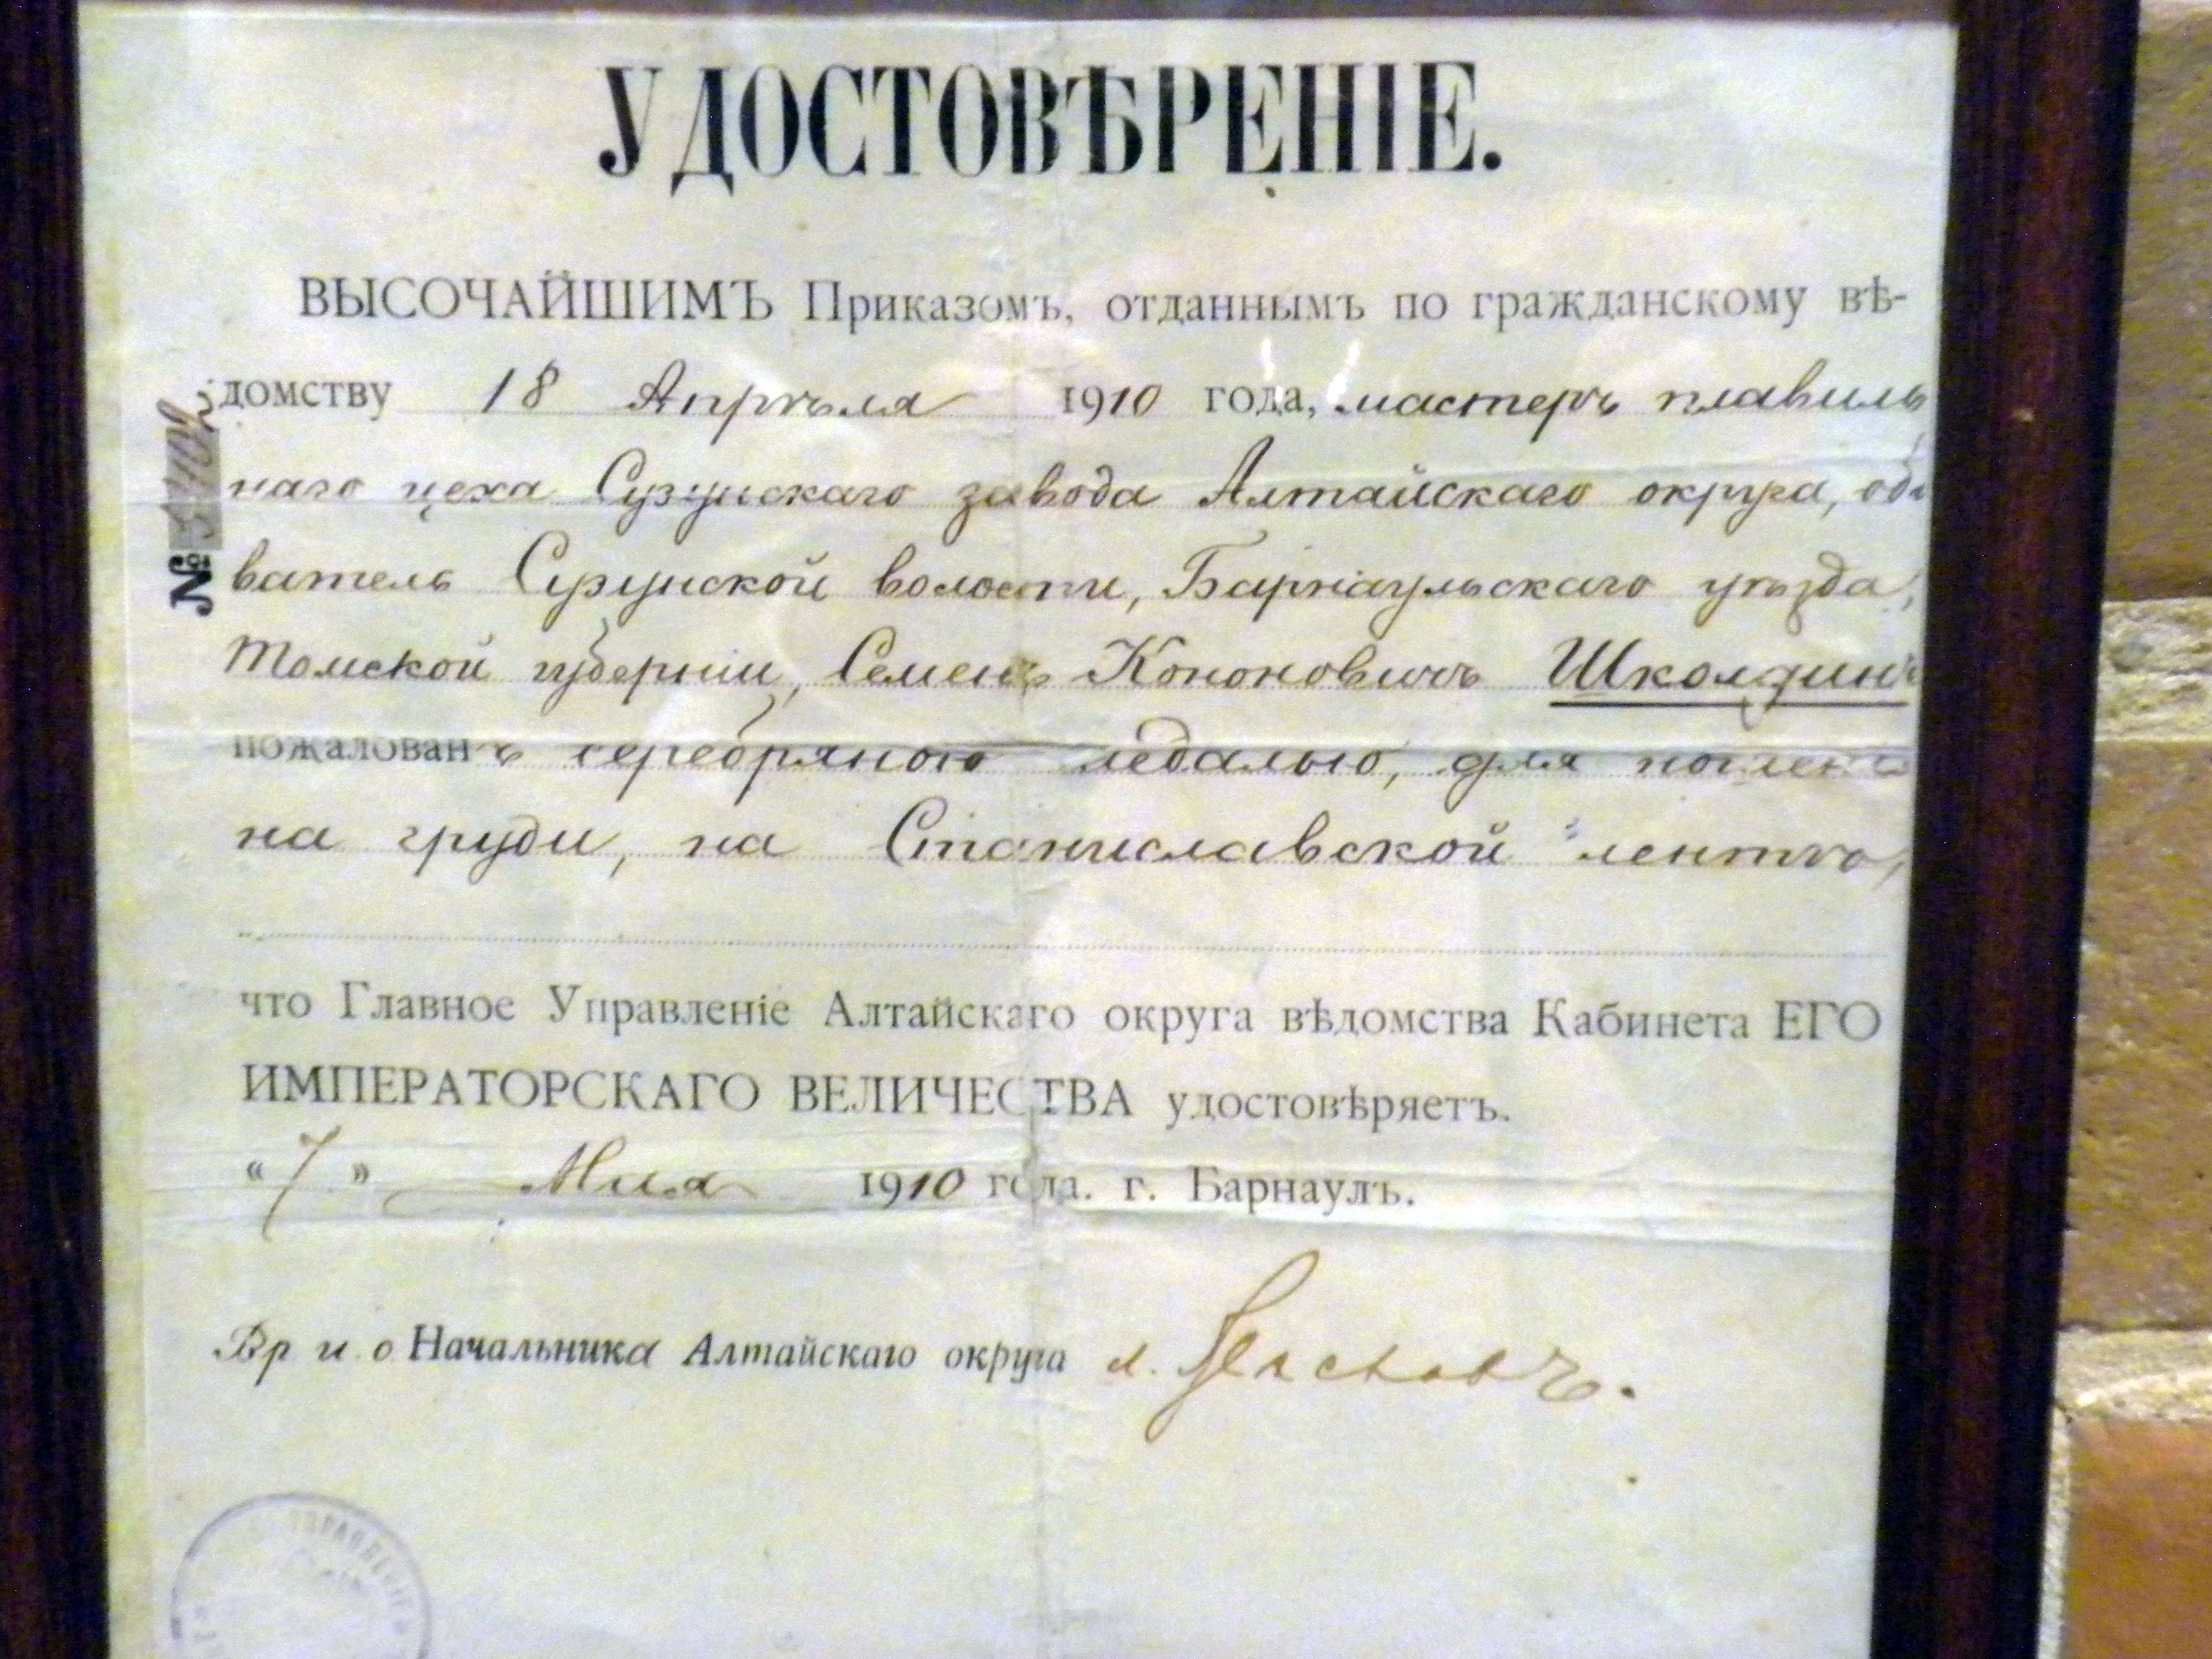 УДОСТОВѢРЕНІЕ.
ВЫСОЧАЙШИМЪ Приказомъ, отданнымъ по гражданскому вѣ-
домству 18 Апрѣля 1910 года, мастеръ плавиль
наго цеха Сузунскаго завода Алтайскаго округа, обы
ватель Сузунской волости, Барнаульскаго уѣзда,
Томской губерніи, Семенъ Кононовичъ Школдинъ
пожалованъ серебряною медалью, для ношенія
на груди, на Станиславской лентѣ,
что Главное Управленіе Алтайскаго округа вѣдомства Кабинета ЕГО
ИМПЕРАТОРСКАГО ВЕЛИЧЕСТВА удостовѣряетъ.
"7" Мая 1910 года. г. Барнаулъ.
Вр и о Начальника Алтайскаго округа
№
УПРАВЛЕНІЕ